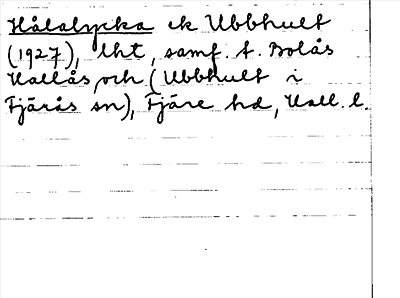 Hålalycka ek Ubbhult
(1927), lht, samf. t. Bolås
Hallås och (Ubbhult i
Fjärås sn), Fjäre hd, Hall. l.